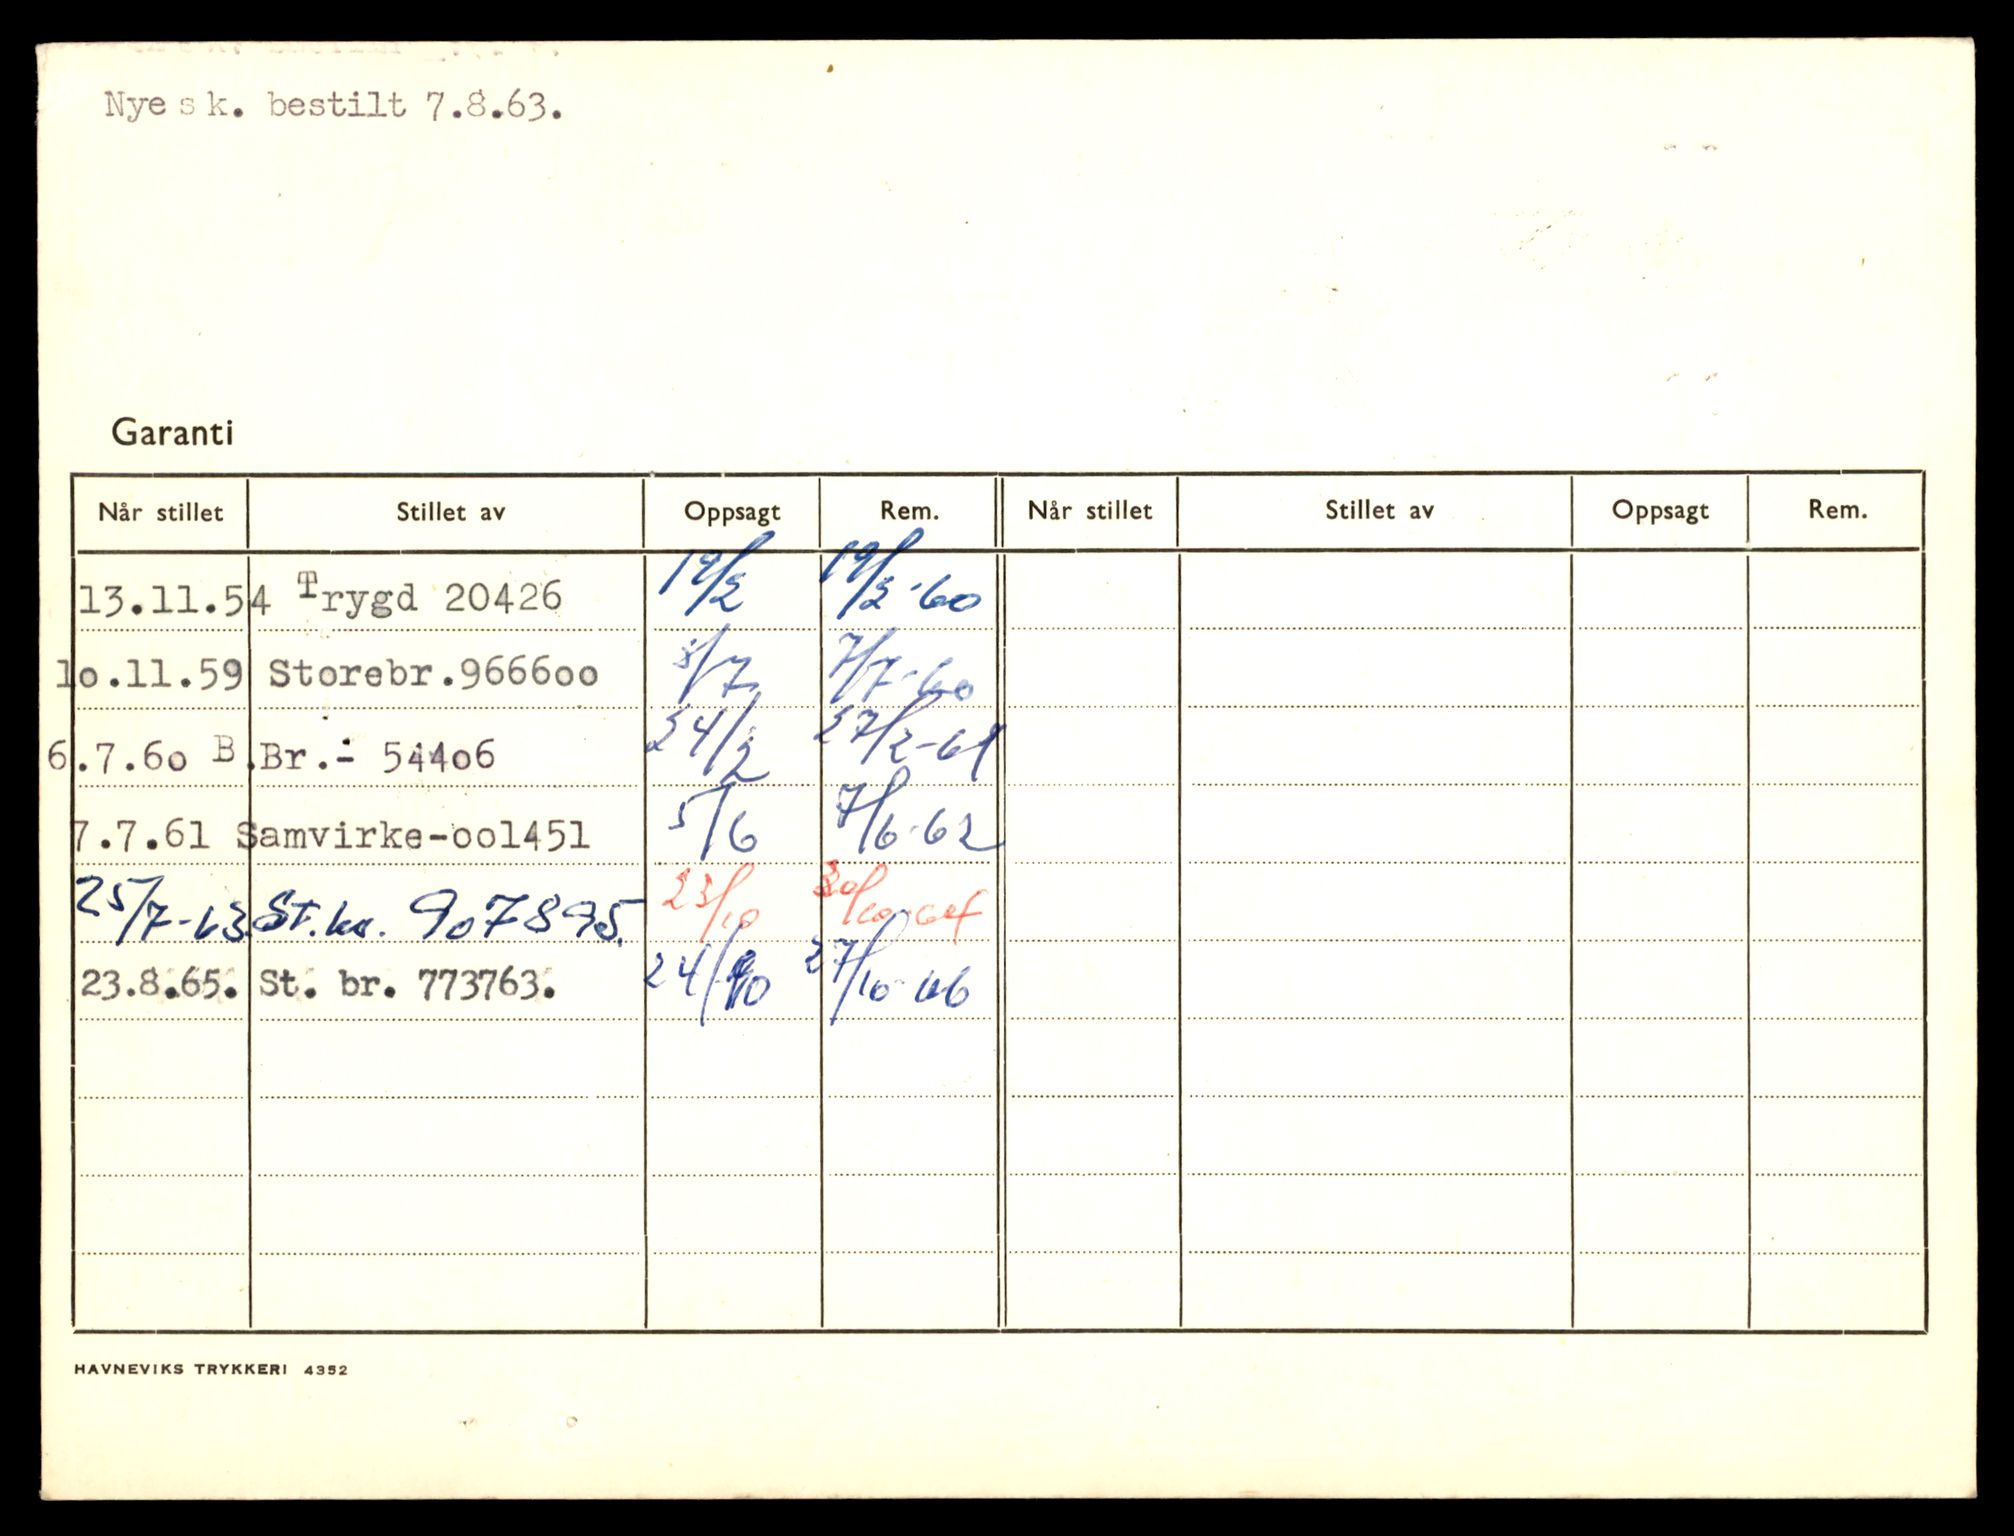 Nye sk. bestilt 7.8.63.
Garanti
Når stillet Stillet av Oppsagt Rem. Når stillet Stillet av Oppsagt Rem.
13.11.54 Trygd 20426 19/2 19/2-60
lo.11.59 Storebr.9666oo 5/7 7/7-60
6.7.6o B.Br.- 544o6 24/2 27/2-61
7.7.61 Samvirke-oo1451 5/6 7/6-62
25/7-63 St.br. 907895. 23/10 30/10-64
23.8.65. St. br. 773763. 24/10 27/10-66
HAVNEVIKS TRYKKERI 4352